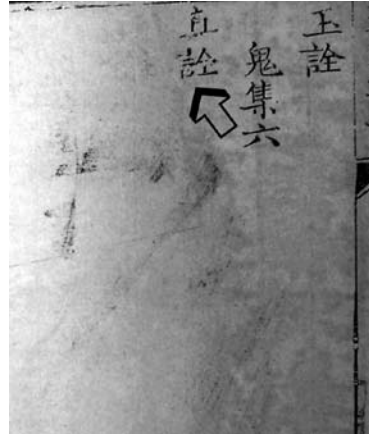 玉詮
鬼集六
真詮